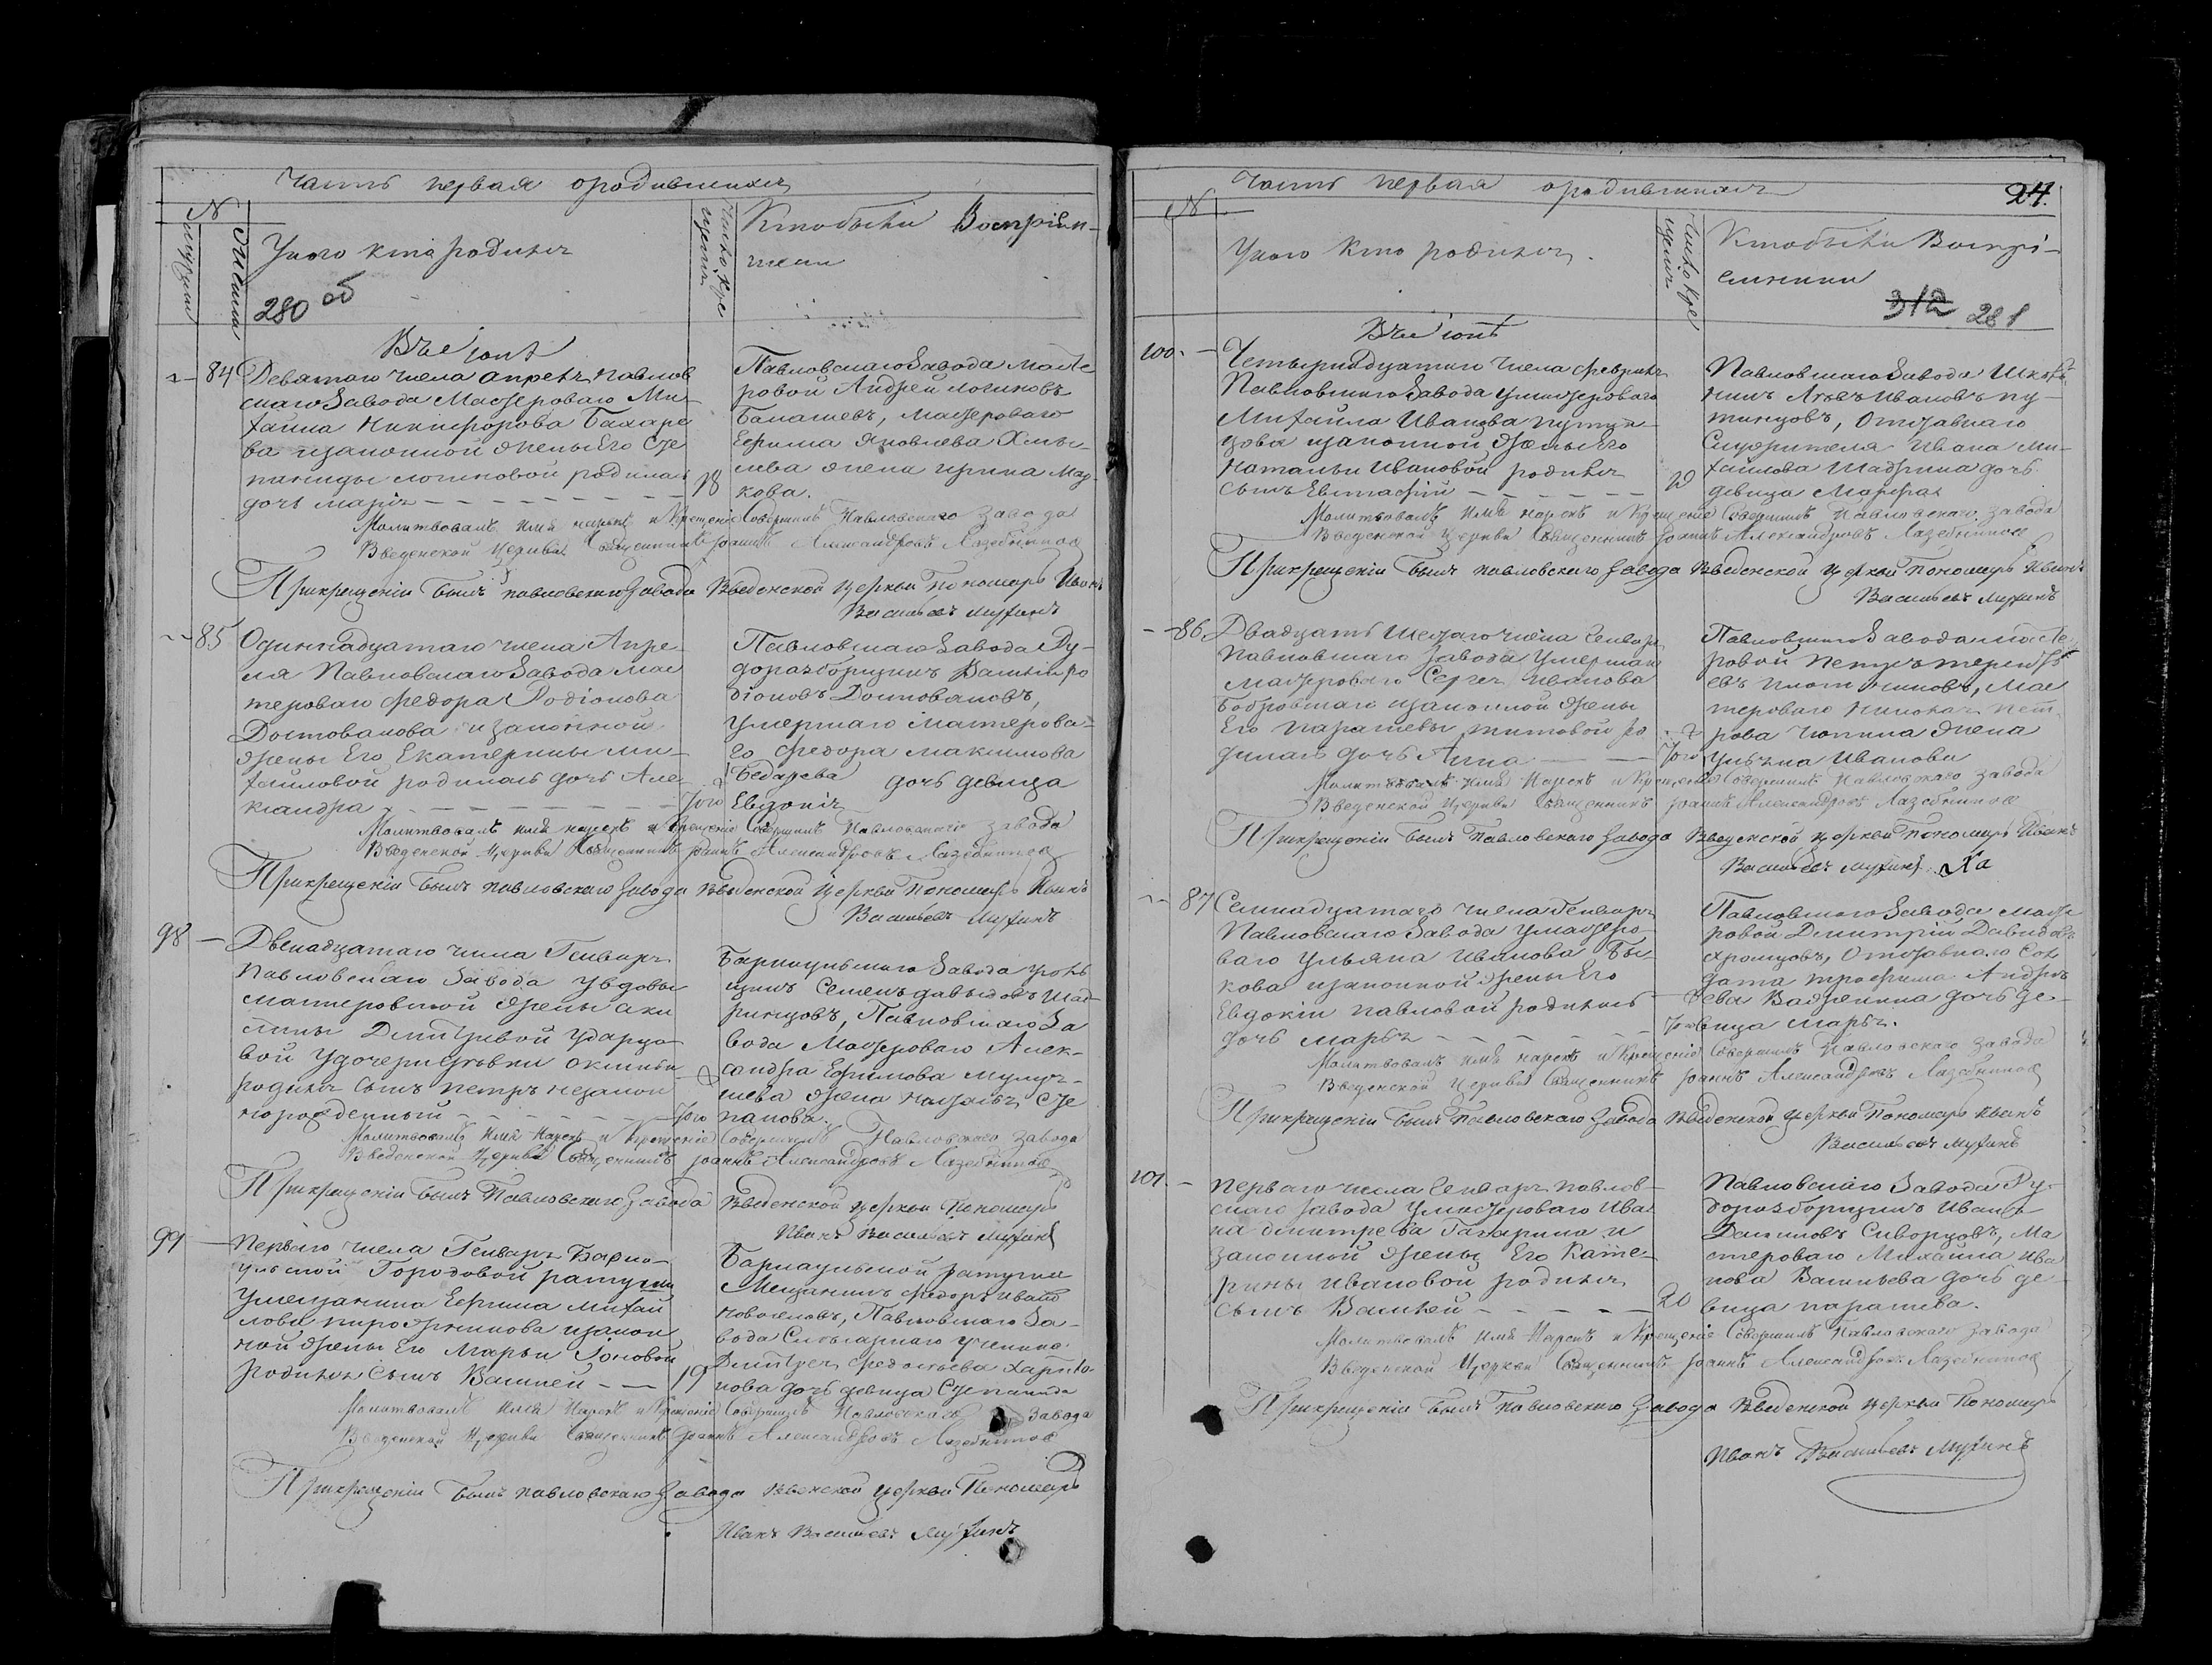 Часть первая ородившихся
№
мужеска
женска
У кого кто родился
280 об
Число кре
щенія
Кто были Воспріем-
ники
Въ сентѣ
84 Девятаго числа апреля Павлов
скаго Завода Мастероваго Ми-
хаила Никифорова Бахаре
ва изаконной жены Его Сте
паниды логиновой родилась
дочь марія 18
Павловскаго Завода Масте
ровой Андрей логиновъ
Балашевъ, Мастероваго
Ефима Яковлева Хмы-
лева жена ирина Мар-
кова.
Молитвовалъ имя нарекъ и Крещеніе Совершилъ Павловскаго Завода
Введенской Церкви Священникъ Іоаннъ Александровъ Лазебников
При крещеніи былъ павловскаго Завода Введенской церкви Пономарь Иванъ
Васильевъ Мухинъ
85 Одиннадцатаго числа Апре-
ля Павловскаго Завода Мас
тероваго Федора Родіонова
Долтованова изаконной
жены Его Екатерины Ми-
хайловой родилась дочь Але
ксандра того
Павловскаго Завода Ру-
доразборщикъ Василій ро
діоновъ Долтовановъ,
Умершаго Мастерова-
го Федора Максимова
Бедарева дочь девица
Евдокія
Молитвовалъ имя нарекъ и Крещеніе Совершилъ Павловскаго Завода
Введенской Церкви Священникъ Іоаннъ Александровъ Лазебников
При крещеніи былъ павловскаго Завода Введенской Церкви Пономарь Иванъ
Васильевъ Мухинъ
98 Двенадцатаго числа Генваря
Павловскаго Завода Увдовы
мастеровской жены аки
лины Дмитривой Ударцо-
вой Удочери
родился сынъ петръ незакон
норожденный того
Барнаульскаго Завода уроч
щикъ Семенъ давыдовъ Шад-
ринцовъ, Павловскаго За
вода Мастероваго Алек-
сандра Ефимова
жена Наталья Сте
панова.
Молитвовалъ имя Нарекъ и Крещеніе Совершилъ Павловскаго Завода
Введенской Церкви Священникъ Іоаннъ Александровъ Лазебников
При крещеніи былъ Павловскаго Завода Введенской церкви Пономарь
Иванъ Васильевъ Мухинъ
99 Перваго числа Генваря Барна-
ульской Городовой ратуши
Умещанина Ефима Михай
лова пирожникова изакон
ной жены Его Марьи Іоновой
родился сынъ Василей 19
Барнаульской ратуши
Мещанинъ Федоръ Ивано
Новоселовъ, Павловскаго За-
вода Слесарнаго ученика
Дмитрея Федосьева Харито
нова дочь девица Степанида
Молитвовалъ имя Нарекъ и Крещеніе Совершилъ Павловскаго Завода
Введенской Церкви Священникъ Іоаннъ Александровъ Лазебников
При крещеніи былъ павловскаго Завода церкви Пономарь
Иванъ Васильевъ Мухинъ
Часть первая ородившихся
24.
№
У кого кто родился.
Число кре
щенія
Кто были Воспрі-
емники
312 281
Въ сентѣ
100. Четырнадцатаго числа февраля
Павловскаго Завода Умастероваго
Михайла Иванова путин-
цова изаконной жены Его
Натальи Ивановой родился
сынъ Евстафій 20
Павловскаго Завода Школь
никъ Ивановъ пу-
тинцовъ, Отставнаго
Служителя Ивана Ми-
хайлова Шадрина дочь
девица Марфа
Молитвовалъ имя нарекъ и Крещеніе Совершилъ Павловскаго Завода
Введенской Церкви Священникъ Іоаннъ Александровъ Лазебников
При крещеніи былъ павловскаго Завода Введенской церкви Пономарь Иванъ
Васильевъ Мухинъ
86. Двадцать шестаго числа Генваря
Павловскаго Завода Умершаго
Мастероваго Сергея Иванова
Бобровскаго изаконной жены
Его Парасковьи титовой ро
дилась дочь Анна того
Павловскаго Завода Масте
ровой Петръ терентьевъ
Плотниковъ, Мас
тероваго Николая Пет
рова Чопина жена
Ульяна Иванова
Молитвовалъ имя Нарекъ и Крещеніе Совершилъ Павловскаго Завода
Введенской Церкви Священникъ Іоаннъ Александровъ Лазебников
При крещеніи былъ Павловскаго Завода Введенской церкви Пономарь Иванъ
Васильевъ Мухинъ
87 Семнадцатаго числа Генваря
Павловскаго Завода Умастеро-
ваго Ульяна Иванова Бы-
кова изаконной жены Его
Евдокіи павловой родилась
дочь марья того
Павловскаго Завода Масте
ровой Дмитрій Давидовъ
Хромцовъ, Отставнаго Сол
дата трофима Андре
ева Вадренина дочь де-
вица марья.
Молитвовалъ имя нарекъ и Крещеніе Совершилъ Павловскаго Завода
Введенской Церкви Священникъ Іоаннъ Александровъ Лазебников
При крещеніи былъ Павловскаго Завода Введенской церкви Пономарь Иванъ
Васильевъ Мухинъ
101. Перваго числа Генваря Павлов-
скаго Завода Умастероваго Ива
на дмитрева Гагарина и
законной жены Его Кате-
рины Ивановой родился
сынъ Василей 20
Павловскаго Завода Ру-
доразборщикъ Иванъ
Даниловъ Скворцовъ, Ма
стероваго Михайла Ива
нова Васильева дочь де
вица парасева.
Молитвовалъ имя Нарекъ и Крещеніе Совершилъ Павловскаго Завода
Введенской Церкви Священникъ Іоаннъ Александровъ Лазебников
При крещеніи былъ Павловскаго Завода Введенской церкви Пономарь
Иванъ Васильевъ Мухинъ